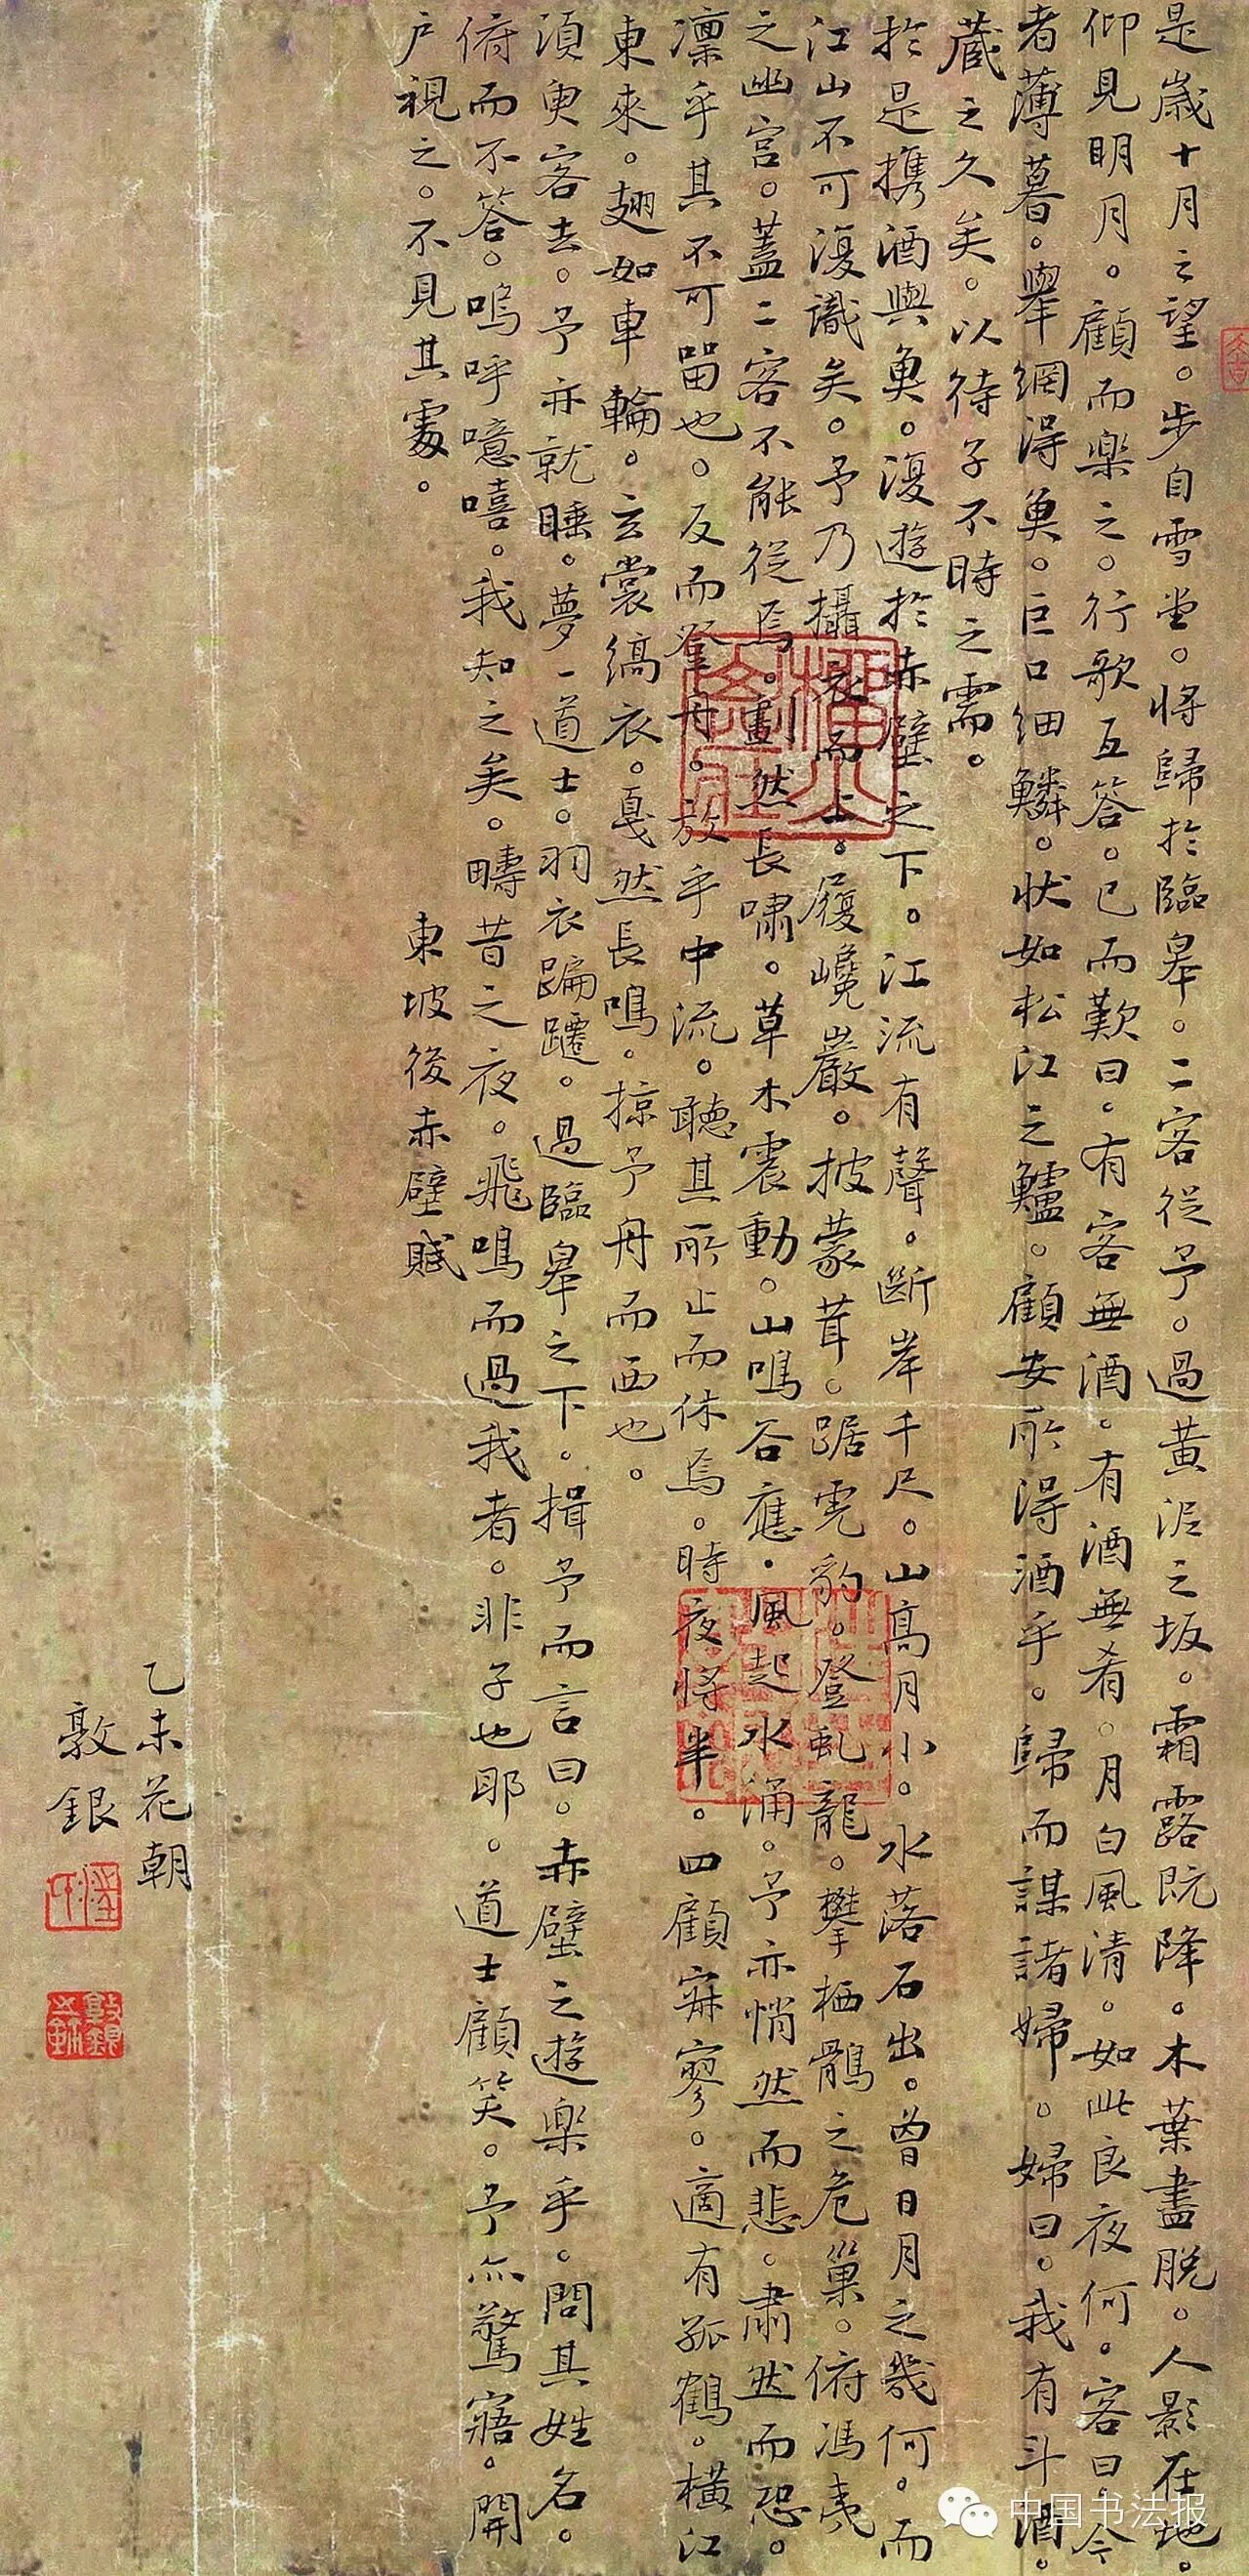 是歲十月之望。步自雪堂。將歸於臨皋。二客從予。過黃泥之坂。霜露既降。木葉盡脫。人影在地。
仰見明月。顧而樂之。行歌互答。已而歎曰。有客無酒。有酒無肴。月白風清。如此良夜何。客曰。今
者薄暮。舉網得魚。巨口細鱗。狀如松江之鱸。顧安所得酒乎。歸而謀諸婦。婦曰。我有斗酒。
蔵之久矣。以待子不時之需。
於是携酒與魚。復遊於赤壁之下。江流有聲。斷岸千尺。山高月小。水落石出。曾日月之幾何。而
江山不可復識矣。予乃攝衣而上。履巉巖。披蒙茸。踞虎豹。登虬龍。攀栖鶻之危巢。俯馮夷
之幽宮。蓋二客不能從焉。劃然長嘯。草木震動。山鳴谷應。風起水涌。予亦悄然而悲。肅然而恐。
凜乎其不可留也。反而登舟。放乎中流。聽其所止而休焉。時夜將半。四顧寂寥。適有孤鶴。橫江
東來。翅如車輪。玄裳縞衣。戛然長鳴。掠予舟而西也。
須臾客去。予亦就睡。夢一道士。羽衣蹁躚。過臨皋之下。揖予而言曰。赤壁之遊樂乎。問其姓名。
俯而不答。嗚呼噫嘻。我知之矣。疇昔之夜。飛鳴而過我者。非子也耶。道士顧笑。予亦驚寤。開
户視之。不見其處。
東坡後赤壁賦
乙未花朝
敦銀
中国书法报